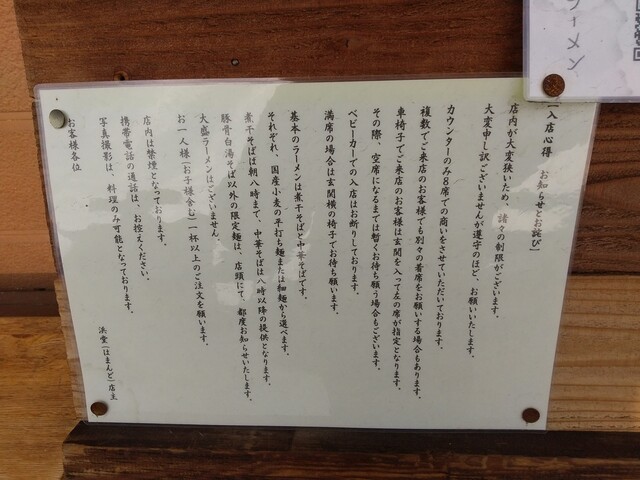 【入店心得　お知らせとお詫び】
店内が大変狭いため、諸々の制限がございます。
大変申し訳ございませんが遵守のほど、お願いいたします。
カウンターのみ８席での商いをさせていただいております。
複数でご来店のお客様でも別々の着席をお願いする場合もあります。
車椅子でご来店のお客様は玄関を入って左の席が指定となります。
その際、空席になるまでは暫くお待ち願う場合もございます。
ベビーカーでの入店はお断りしております。
満席の場合は玄関横の椅子でお待ち願います。
基本のラーメンは煮干そばと中華そばです。
それぞれ、国産小麦の平打ち麺または細麺から選べます。
煮干そばは朝八時まで、中華そばは八時以降の提供となります。
豚骨白湯そば以外の限定麺は、店頭にて、都度お知らせいたします。
大盛ラーメンはございません。
お一人様（お子様含む）一杯以上のご注文を願います。
店内は禁煙となっております。
携帯電話の通話は、お控えください。
写真撮影は、料理のみ可能となっております。
お客様各位
浜堂（はまんど）店主
ラーメン